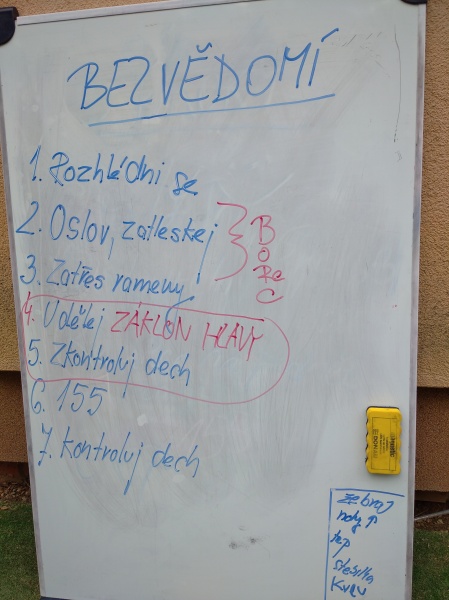 BEZVĚDOMÍ
1. Rozhlédni se
2. Oslov, zatleskej
3. Zatřes rameny!
B
O
C
4. Udělej ZÁKLON HLAVY
5. Zkontroluj dech
6. 155
7. Kontroluj dech
nohy ↑
tep